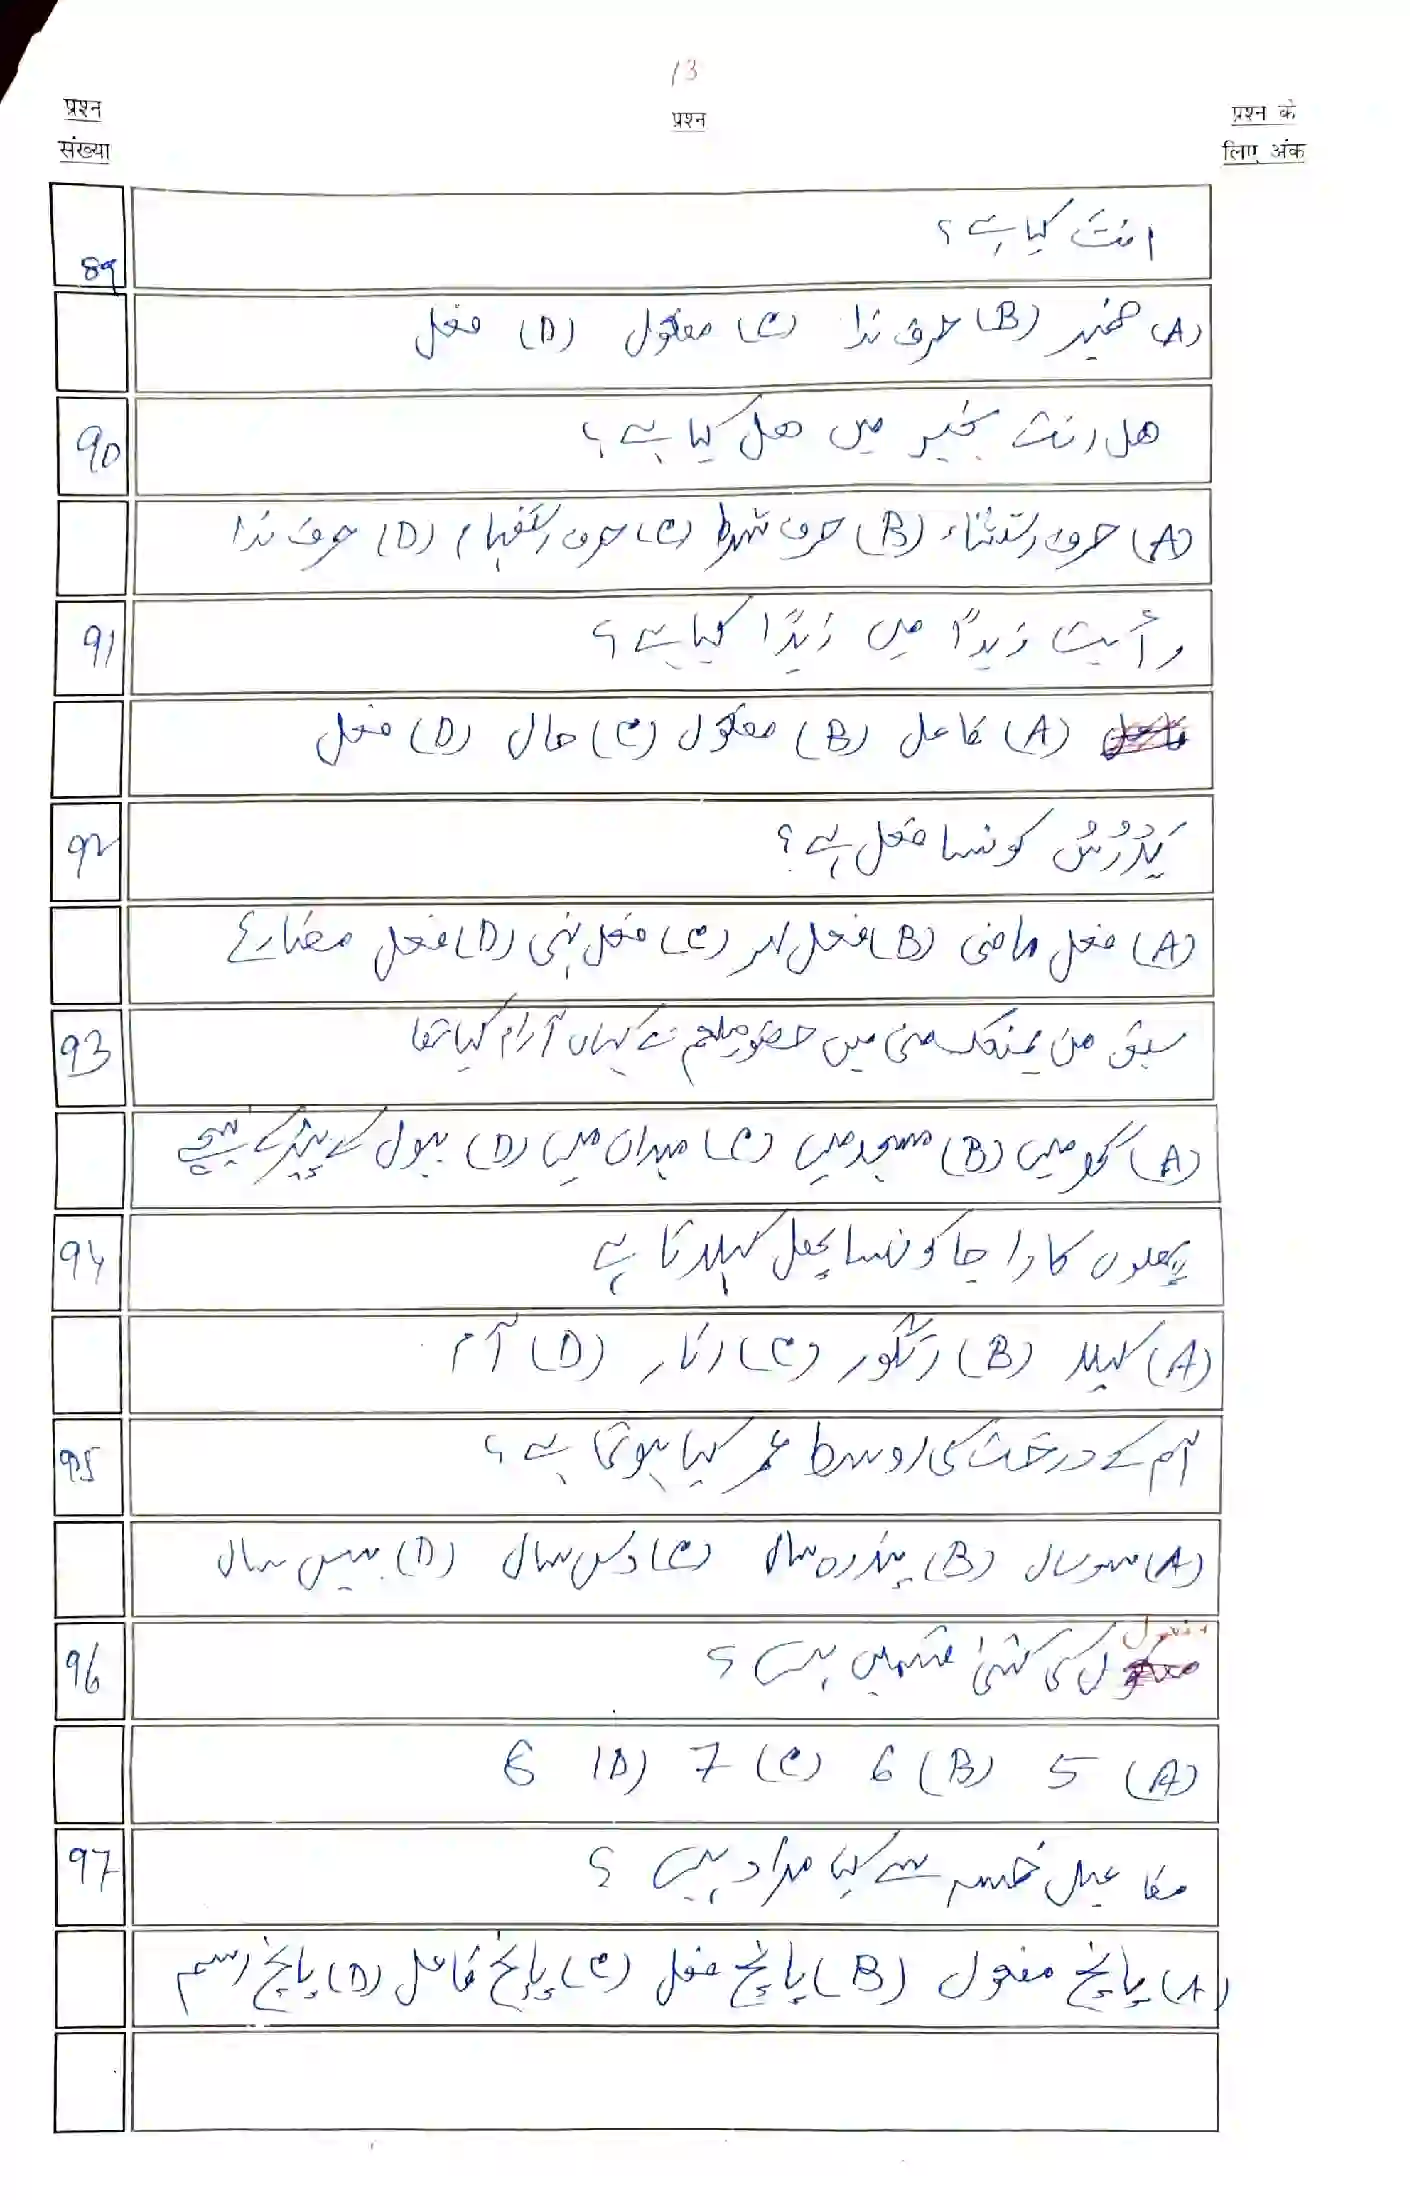 13
प्रश्न संख्या
प्रश्न
प्रश्न के लिए अंक
89 انت کیا ہے ؟
(A) ضمیر (B) حرف ندا (C) مفعول (D) فعل
90 ھل انت بخیر میں ھل کیا ہے ؟
(A) حرف استثناء (B) حرف شرط (C) حرف استفہام (D) حرف ندا
91 رأیت زیداً میں زیداً کیا ہے ؟
(A) فاعل (B) مفعول (C) حال (D) فعل
92 یَدْرُسُ کونسا فعل ہے ؟
(A) فعل ماضی (B) فعل امر (C) فعل نہی (D) فعل مضارع
93 سبق من یمنعک منی میں حضور صلعم نے کہاں آرام کیا تھا
(A) گھر میں (B) مسجد میں (C) میدان میں (D) ببول کے پیڑ کے نیچے
94 پھلوں کا راجا کونسا پھل کہلاتا ہے
(A) کیلا (B) انگور (C) انار (D) آم
95 آم کے درخت کی اوسط عمر کیا ہوتا ہے ؟
(A) سو سال (B) پندرہ سال (C) دس سال (D) بیس سال
96 مفعول کی کتنی قسمیں ہیں ؟
(A) 5 (B) 6 (C) 7 (D) 8
97 مفاعیل خمسہ سے کیا مراد ہیں ؟
(A) پانچ مفعول (B) پانچ فعل (C) پانچ فاعل (D) پانچ اسم